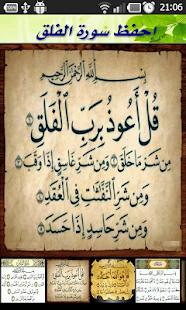 21:06
احفظ سورة الفلق
بِسْمِ اللَّهِ الرَّحْمَٰنِ الرَّحِيمِ
قُلْ أَعُوذُ بِرَبِّ الْفَلَقِ
مِن شَرِّ مَا خَلَقَ وَمِن شَرِّ غَاسِقٍ إِذَا وَقَبَ
وَمِن شَرِّ النَّفَّٰثَٰتِ فِي الْعُقَدِ
وَمِن شَرِّ حَاسِدٍ إِذَا حَسَدَ